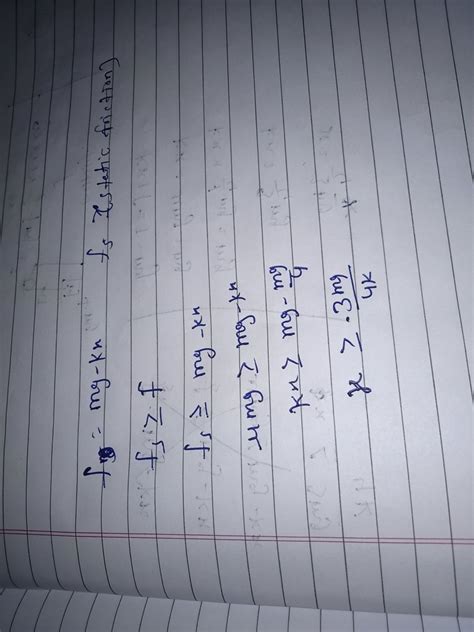 f = mg - kx   fs → (static friction)
fs ≥ f
fs ≥ mg - kx
μ mg ≥ mg - kx
kx ≥ mg - mg/4
x ≥ 3mg/4k